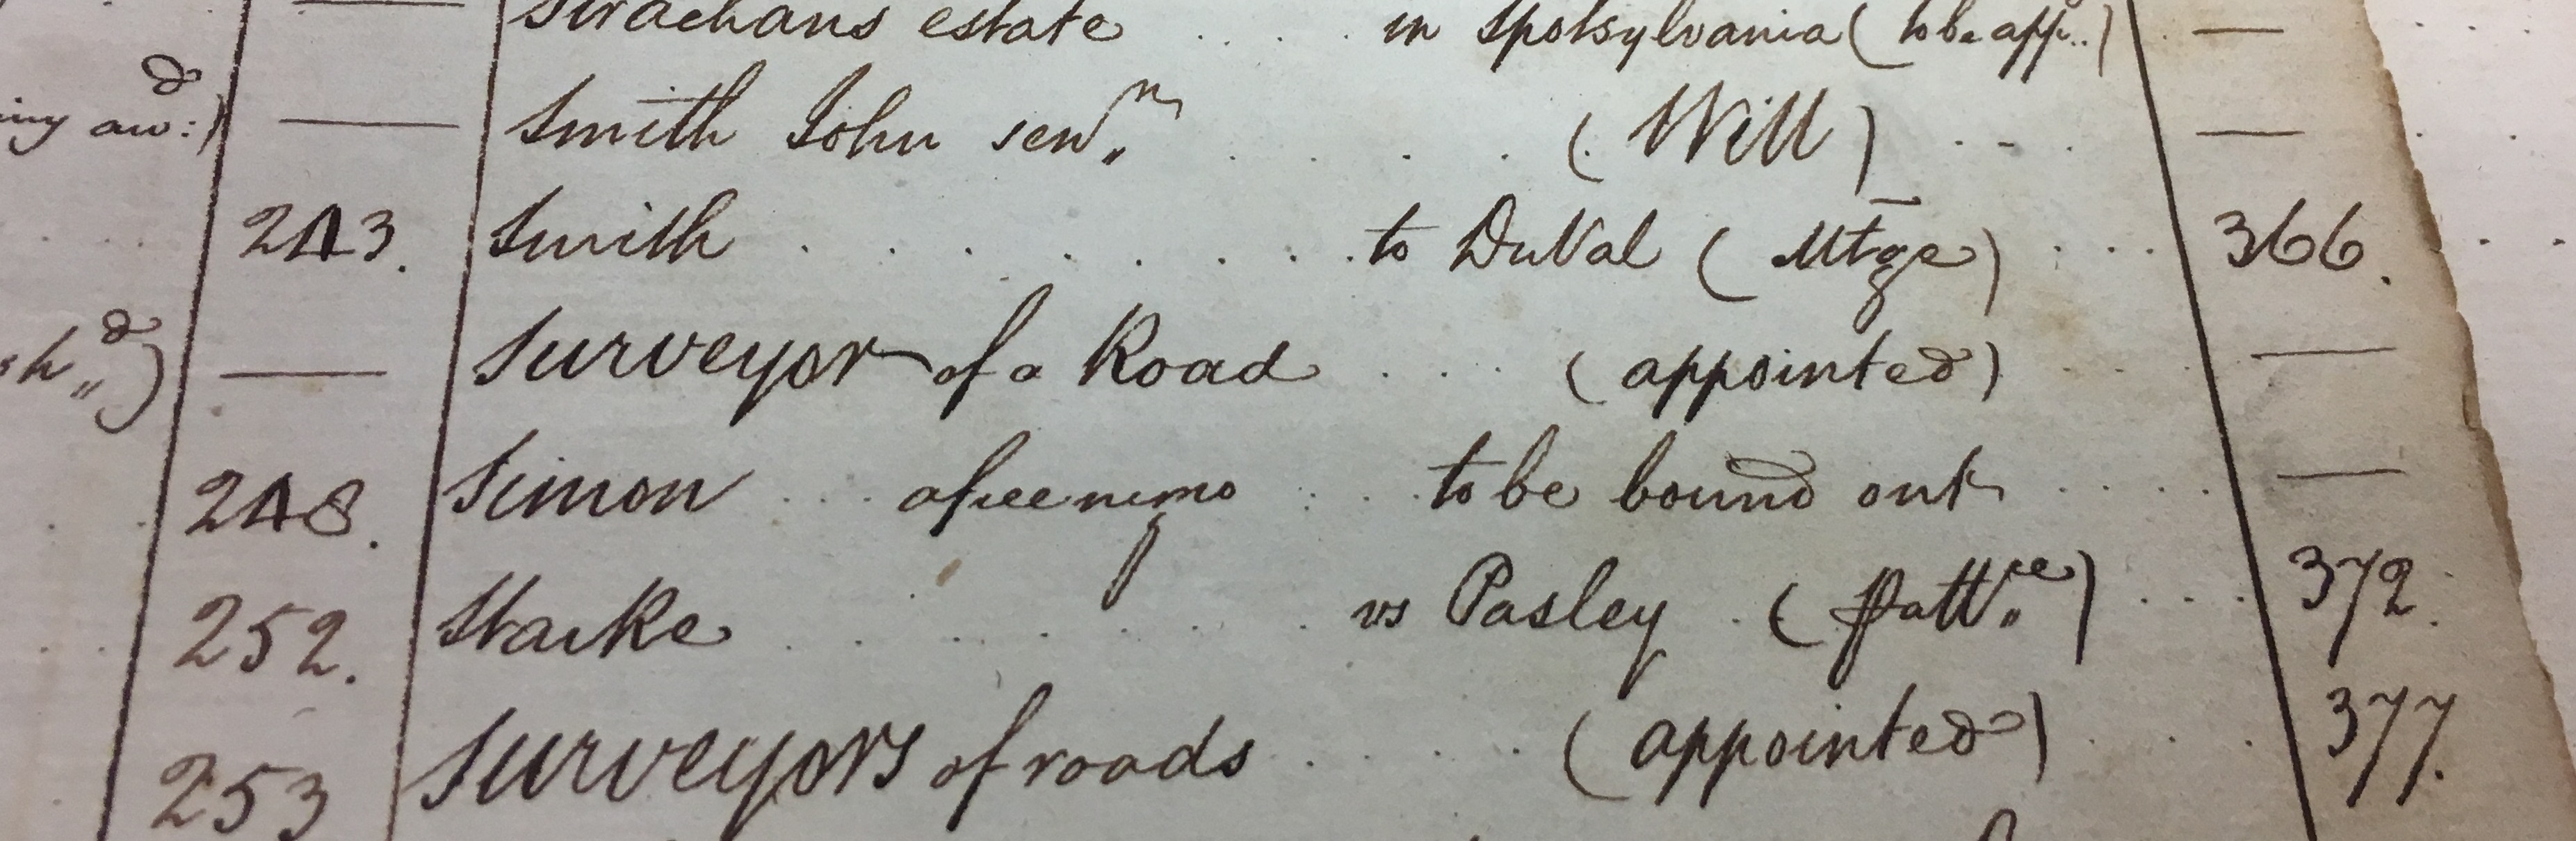 Strachans estate . . . . in Spotsylvania ( to be app.. ) —
ing aw:d) — Smith John senr. . . . . ( Will ) . . . —
243. Smith . . . . . . . to DuVal ( Mtge ) . . . 366.
d) — Surveyor of a Road . . . ( appointed ) . . . —
248. Simon . . . a free negro . . . to be bound out . . . . —
252. Starke . . . . . . vs Pasley . ( Patt.ce ) . . . 372.
253 Surveyors of roads . . . . . ( appointed ) . . . 377.